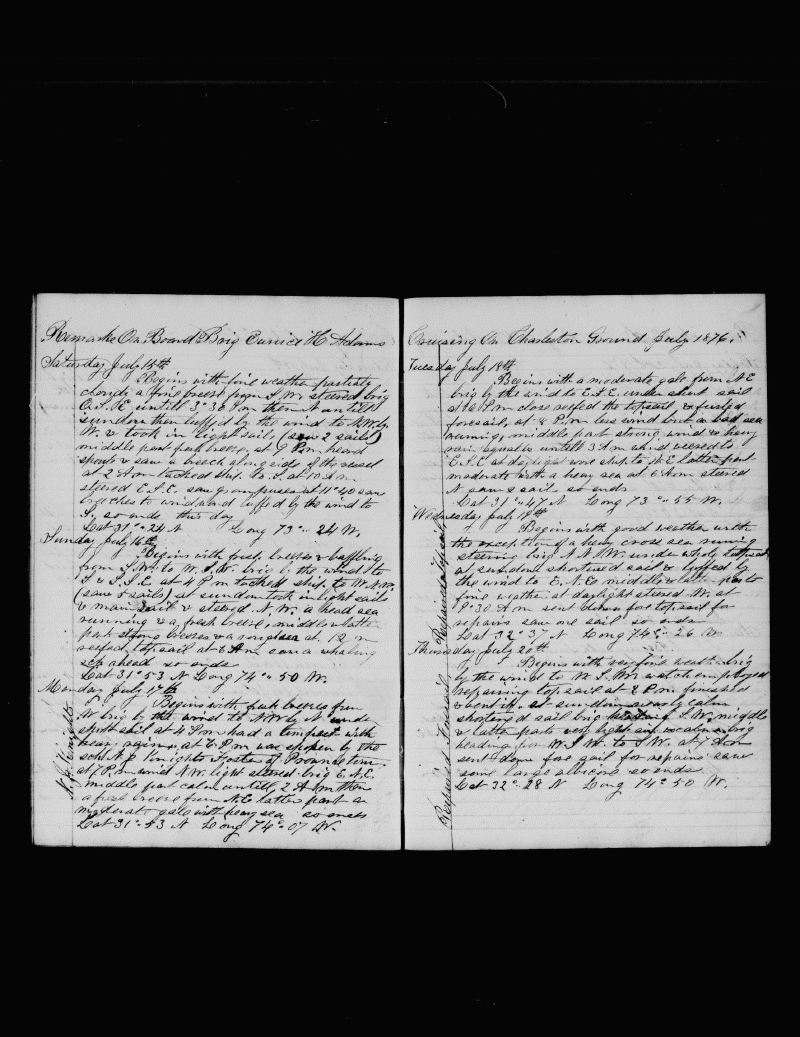 Remarks On Board Brig Eunice H Adams
Saturday July 15th
Begins with fine weather partialy
cloudy a fine breeze from S.W. steered brig
E.S.E. untill 3=30 P.m then N untill
sundown then luffed by the wind to N.W. by
W. & took in light sails (saw 2 sails)
middle part fresh breeze, at 9 P.m heard
spouts & saw a breech alongside of the vessel
at 2 A.m tacked ship to S. at 10 A.m
steered E.S.E. saw grampuses at 11=40 saw
breeches to windward luffed by the wind to
S. so ends this day
Lat 31°=24 N Long 73°=24 W.
Sunday July 16th
Begins with fresh breezes & baffling
from S.W. to W.S.W. brig by the wind to
S & S.S.E. at 4 P.m tacked ship to W.N.W.
(saw 5 sails) at sundown took in light sails
& main sail & steered N.W. a head sea
running & a fresh breeze, middle & latter
part strong breezes & a rough sea at 12 m
reefed topsail at 8 A.m saw a whaling
sch ahead so ends
Lat 31°=53 N Long 74°=50 W.
Monday July 17th
Begins with fresh breezes from
W brig by the wind to N.W. by N under
short sail at 4 P.m had a tempest with
heavy rain, at 6 P.m was spoken by the
sch N.J. Knights Foster of Provincetown
at 7 P.m wind N.W. light steered brig E.N.E.
middle part calm untill 2 A.m then
a fresh breeze from N.E. latter part a
moderate gale with heavy sea so ends
Lat 31°=53 N Long 74°=07 W.
N.J. Knights
Cruising On Charleston Ground July 1876.
Tuesday July 18th
Begins with a moderate gale from N.E
brig by the wind to E.S.E. under short sail
at 6 P.m close reefed the topsail, & furled
foresail, at 8 P.m less wind but a bad sea
running, middle part strong wind & heavy
rain squalls untill 3 A.m wind veered to
E.S.E at daylight wore ship to N.E latter part
moderate with a heavy sea at 6 A.m steered
N saw 2 sail so ends
Lat 31°=47 N Long 73°=55 W.
Wednesday July 19th
Begins with good weather with
the exception of a heavy cross sea runing
steering brig N.N.W. under whole topsail
at sundown shortened sail & luffed by
the wind to E.N.E middle & latter parts
fine weather at daylight steered W. at
9=30 A.m sent down fore top sail for
repairs saw one sail so ends
Lat 32°=37 N Long 74°=26 W
Repaired Topsail
Thursday July 20th
Begins with very fine weather brig
by the wind to W.S.W. watch employed
repairing top sail at 2 P.m finished
& bent it. at sundown nearly calm
shortened sail brig heading S.W. middle
& latter parts very light airs & calms brig
heading from W.S.W. to S.W. at 7 A.m
sent down fore sail for repairs saw
some large albicores so ends
Lat 32°=28 N Long 74°=50 W.
Repaired Foresail